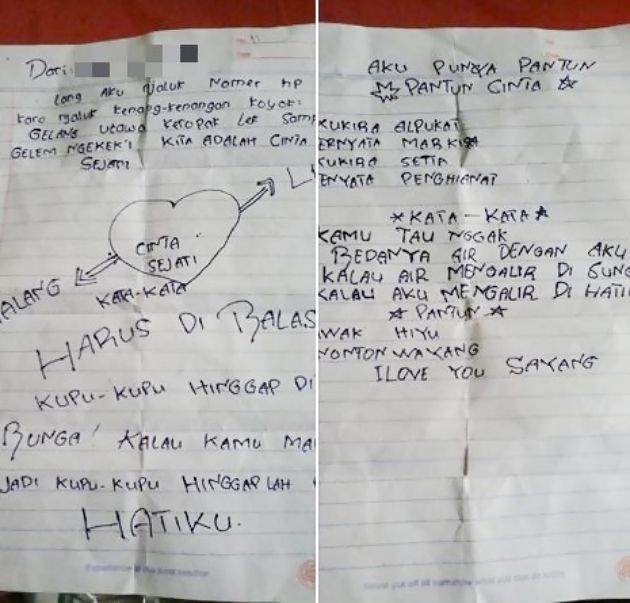 Dari:
Long Aku Njaluk Nomer hp
karo njaluk kenang-kenangan koyok:
GELANG utowo ketopak Lek Samp
GELEM NGEKEK'I KITA ADALAH CINTA
SEJATI
CINTA
SEJATI
MALANG
KATA-KATA
HARUS DI BALAS
KUPU-KUPU HINGGAP DI
BUNGA! KALAU KAMU MA
JADI KUPU-KUPU HINGGAP LAH
HATIKU.
AKU PUNYA PANTUN
PANTUN CINTA
KUKIRA ALPUKAT
ERNYATA MARKISA
KUKIRA SETIA
ENYATA PENGHIANAT
KATA-KATA
KAMU TAU NGGAK
BEDANYA AIR DENGAN AKU
KALAU AIR MENGALIR DI SUNG
KALAU AKU MENGALIR DI HATI
PANTUN
AWAK HIYU
NONTON WAYANG
I LOVE YOU SAYANG